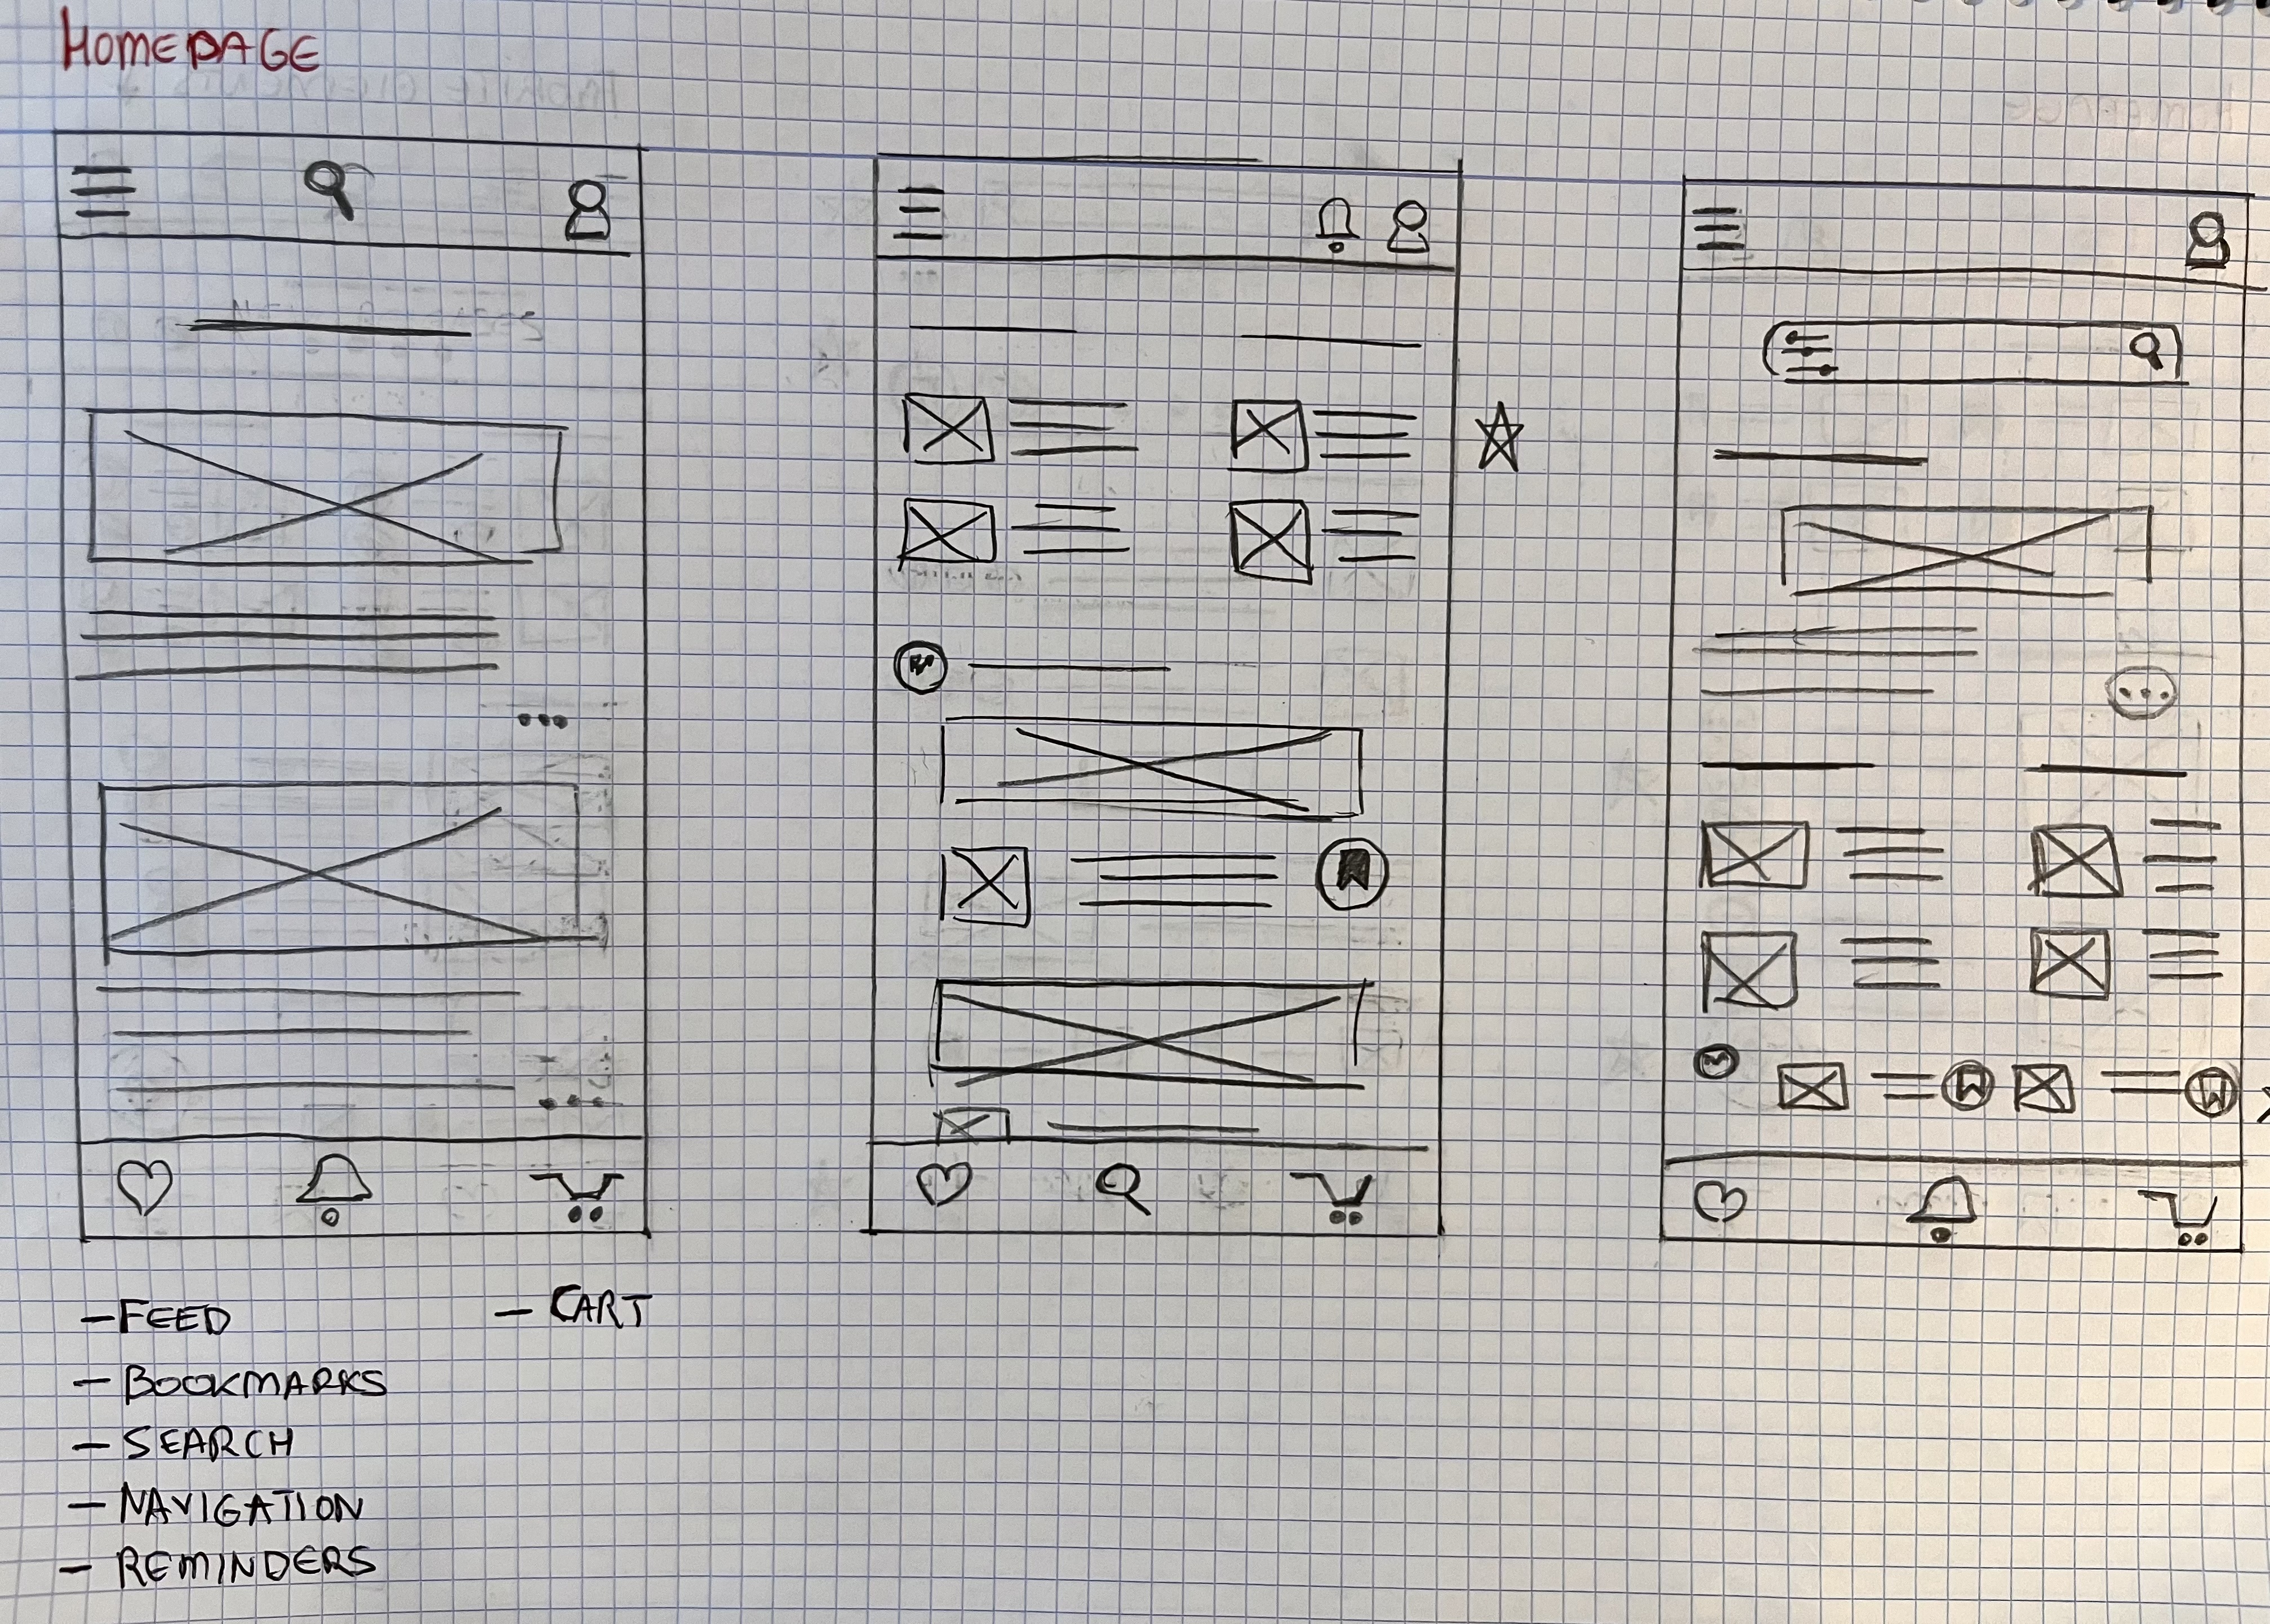 HOMEPAGE
- FEED
- CART
- BOOKMARKS
- SEARCH
- NAVIGATION
- REMINDERS